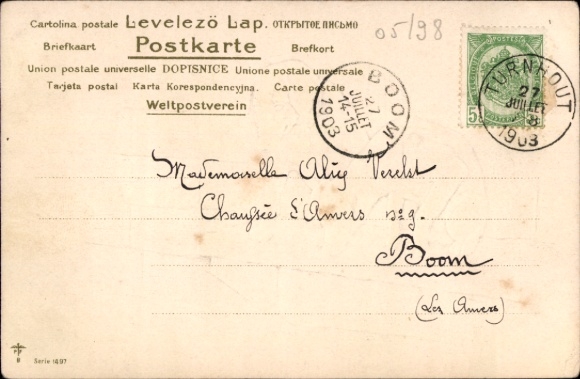 Cartolina postale Levelezö Lap. ОТКРЫТОЕ ПИСЬМО
Briefkaart Postkarte Brefkort
Union postale universelle DOPISNICE Unione postale universale
Tarjeta postal Karta Korespondencyjna. Carte postale
Weltpostverein
05/98
BOOM
27
JUILLET
14-15
1903
TURNHOUT
27
JUILLET
1903
Mademoiselle Verelst
Chaussée d'Anvers
Boom
(Lez Anvers)
Serie 1897